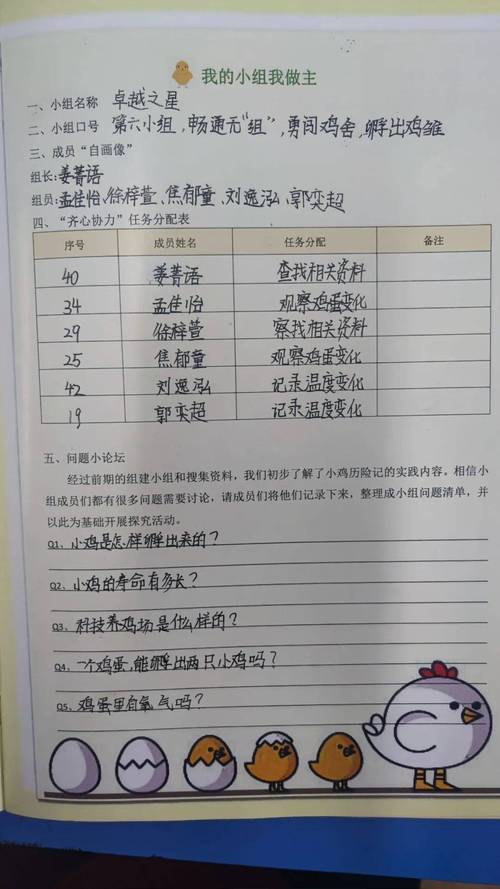 我的小组我做主
一、小组名称 卓越之星
二、小组口号 第六小组,畅通无“组”,勇闯鸡舍,孵出鸡雏
三、成员“自画像”
组长:姜菁语
组员:孟佳怡、徐梓萱、焦郁童、刘逸泓、郭奕超
四、“齐心协力”任务分配表
序号 成员姓名 任务分配 备注
40 姜菁语 查找相关资料
34 孟佳怡 观察鸡蛋变化
29 徐梓萱 察找相关资料
25 焦郁童 观察鸡蛋变化
42 刘逸泓 记录温度变化
19 郭奕超 记录温度变化
五、问题小论坛
经过前期的组建小组和搜集资料,我们初步了解了小鸡历险记的实践内容。相信小
组成员们都有很多问题需要讨论,请成员们将他们记录下来,整理成小组问题清单,并
以此为基础开展探究活动。
Q1、小鸡是怎样孵出来的?
Q2、小鸡的寿命有多长?
Q3、科技养鸡场是什么样的?
Q4、一个鸡蛋,能孵出两只小鸡吗?
Q5、鸡蛋里有氧气吗?